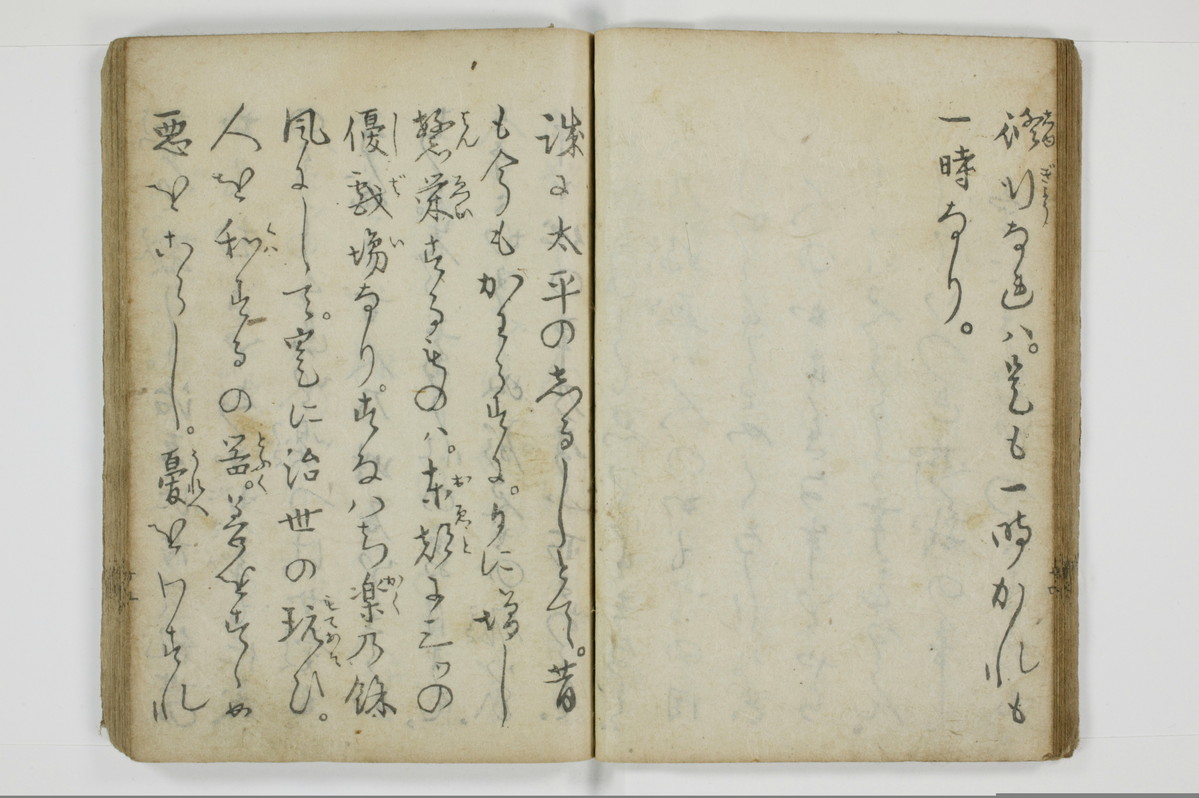 行なれハ。是も一時かれも
一時なり。
誠に太平のしるしとて。昔
も今もかわらすに。月に増し
繁栄するものハ。東都に三ツの
優戯場なり。すなハち楽乃餘
風にして。寔に治世の玩ひ。
人を和するの器。善をすゝめ
悪をこらし。憂をわすれ